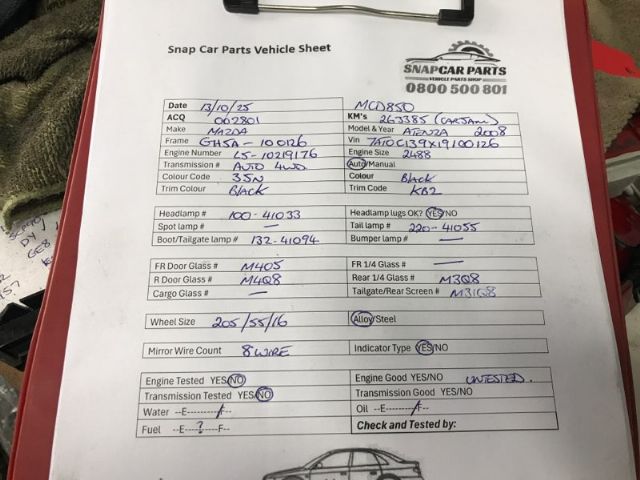 Snap Car Parts Vehicle Sheet
SNAPCAR PARTS
VEHICLE PARTS SHOP
0800 500 801
Date 13/10/25 MCD850
ACQ 002801 KM's 263385 (CARJAM)
Make MAZDA Model & Year ATENZA 2008
Frame GH5A-100126 Vin 7AT0C139X19100126
Engine Number L5-10219176 Engine Size 2488
Transmission # AUTO 4WD Auto/Manual
Colour Code 35N Colour BLACK
Trim Colour BLACK Trim Code KB2
Headlamp # 100-41033 Headlamp lugs OK? YES/NO
Spot lamp # — Tail lamp # 220-41055
Boot/Tailgate lamp # 132-41094 Bumper lamp # —
FR Door Glass # M405 FR 1/4 Glass # —
R Door Glass # M4Q8 Rear 1/4 Glass # M3Q8
Cargo Glass # — Tailgate/Rear Screen # M31G8
Wheel Size 205/55/16 Alloy/Steel
Mirror Wire Count 8 WIRE Indicator Type YES/NO
Engine Tested YES/NO Engine Good YES/NO UNTESTED.
Transmission Tested YES/NO Transmission Good YES/NO
Water --E----------/F-- Oil --E---------/F--
Fuel --E----?----F-- Check and Tested by: